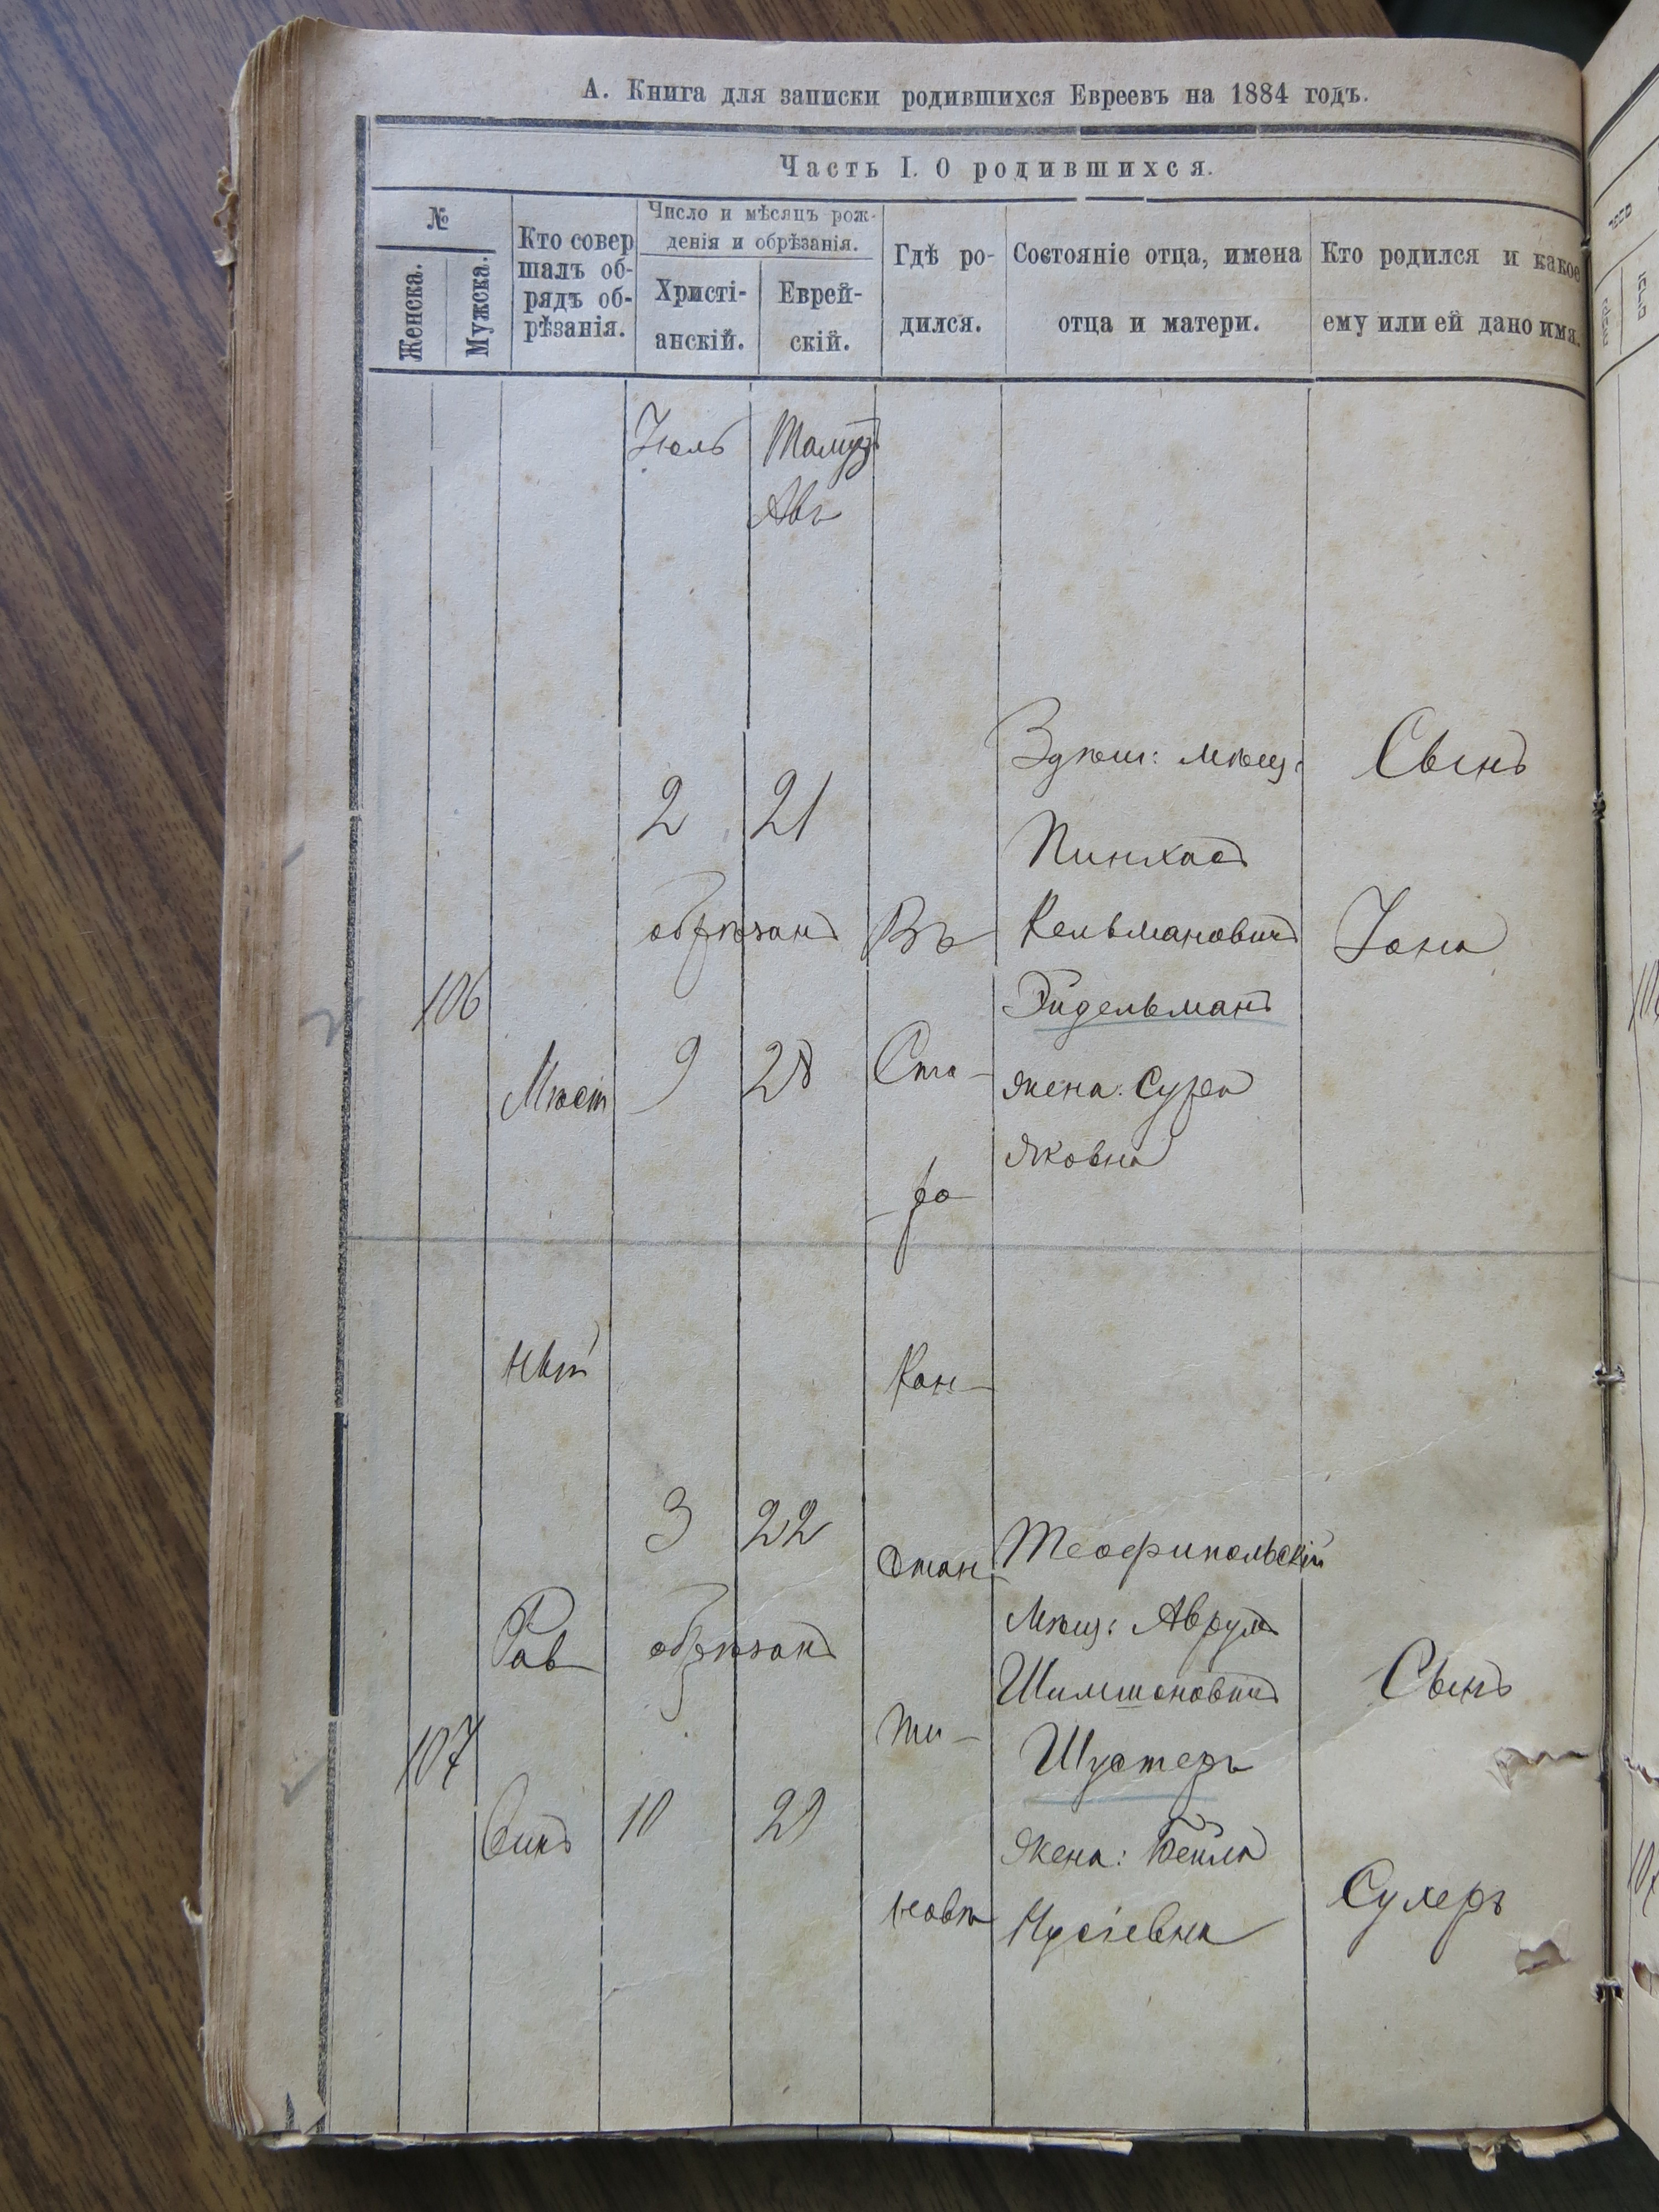 А. Книга для записки родившихся Евреевъ на 1884 годъ.
Часть I. О родившихся.
№
Женска.
Мужска.
Кто совер
шалъ об-
рядъ об-
рѣзанія.
Число и мѣсяцъ рож-
денія и обрѣзанія.
Христі-
анскій.
Еврей-
скій.
Гдѣ ро-
дился.
Состояніе отца, имена
отца и матери.
Кто родился и какое
ему или ей дано имя.
Іюль
Тамузъ
Авъ
106
Мѣст
2 21
обрѣзанъ
9 28
Въ
Ста-
-ро-
Здѣш: мѣщ:
Пинхасъ
Кельмановичъ
Эйдельманъ
жена: Сура
Яковна
Сынъ
Іона
ный
Кон-
107
Рав-
винъ
3 22
обрѣзанъ
10 29
стан-
ти-
новѣ
Теофипольскій
Мѣщ: Аврумъ
Шимшоновичъ
Шустеръ
жена: Бейла
Нусіевна
Сынъ
Сухеръ